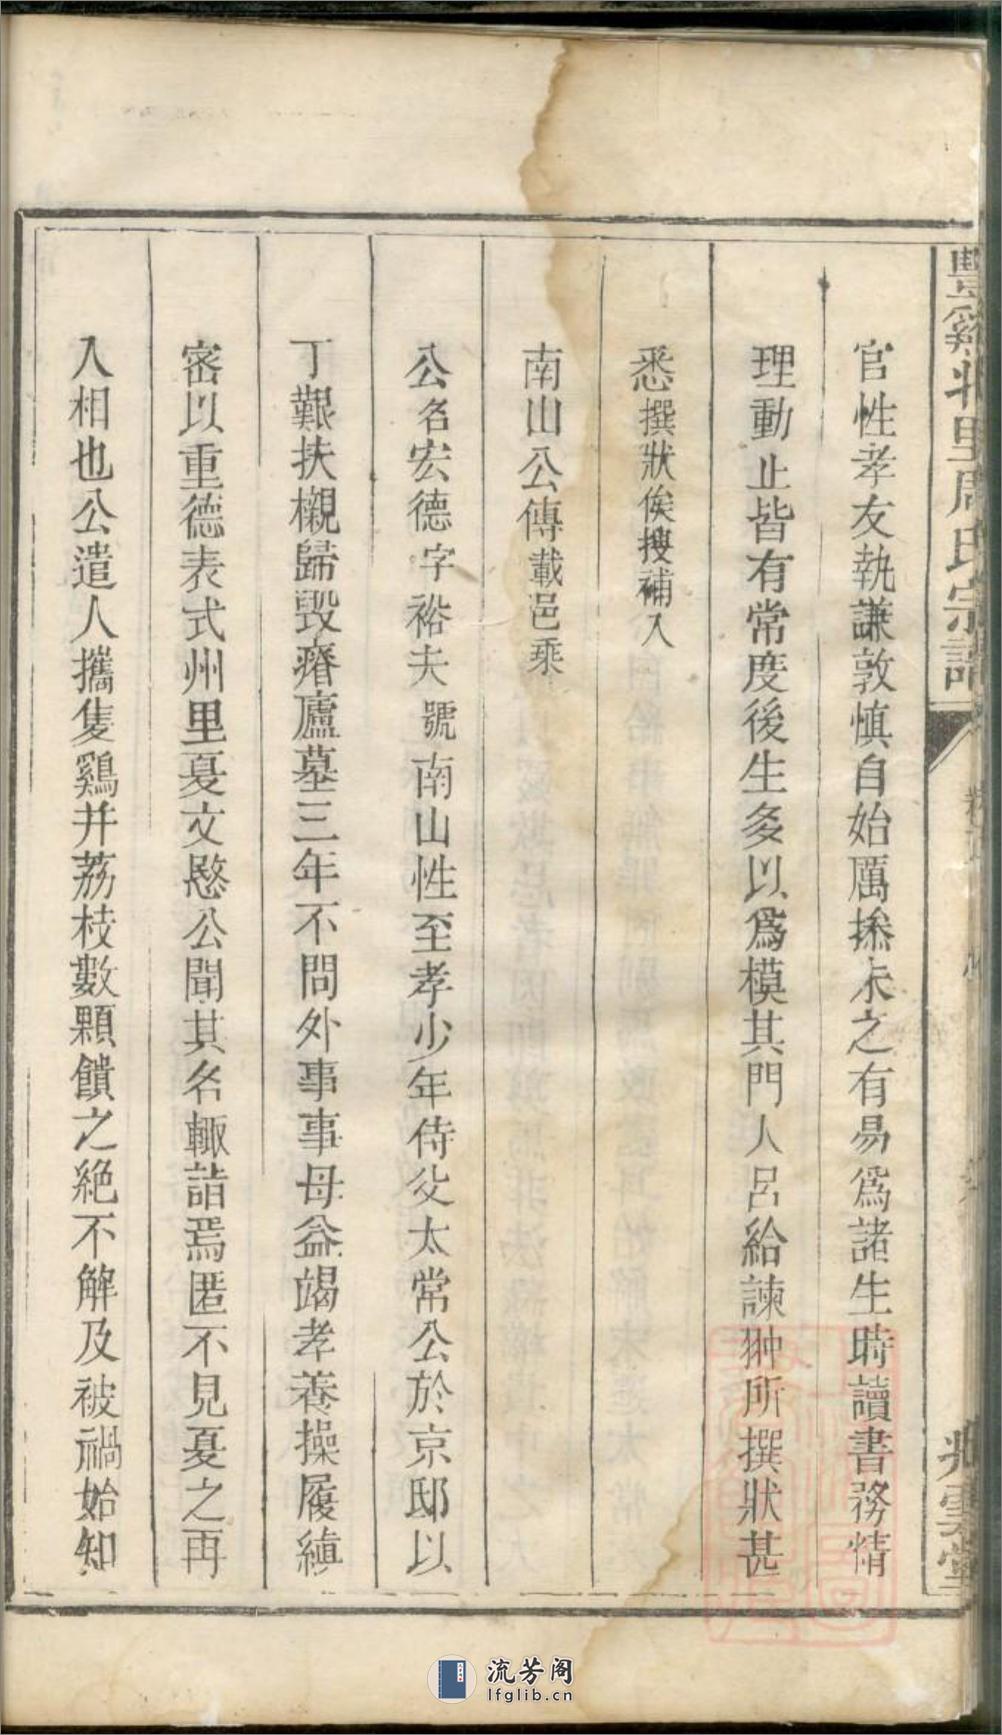 官性孝友執謙敦慎自始厲摻未之有易爲諸生時讀書務精
理動止皆有常度後生多以爲模其門人呂給諫翀所撰狀甚
悉撰狀俟搜補入
南山公傳載邑乘
公名宏德字裕夫號南山性至孝少年侍父太常公於京邸以
丁艱扶櫬歸毀瘠廬墓三年不問外事事母益竭孝養操履縝
密以重德表式州里夏文愍公聞其名輙詣焉匿不見夏之再
入相也公遣人攜隻鷄并荔枝數顆饋之絶不解及被禍始知
流芳阁
lfglib.cn